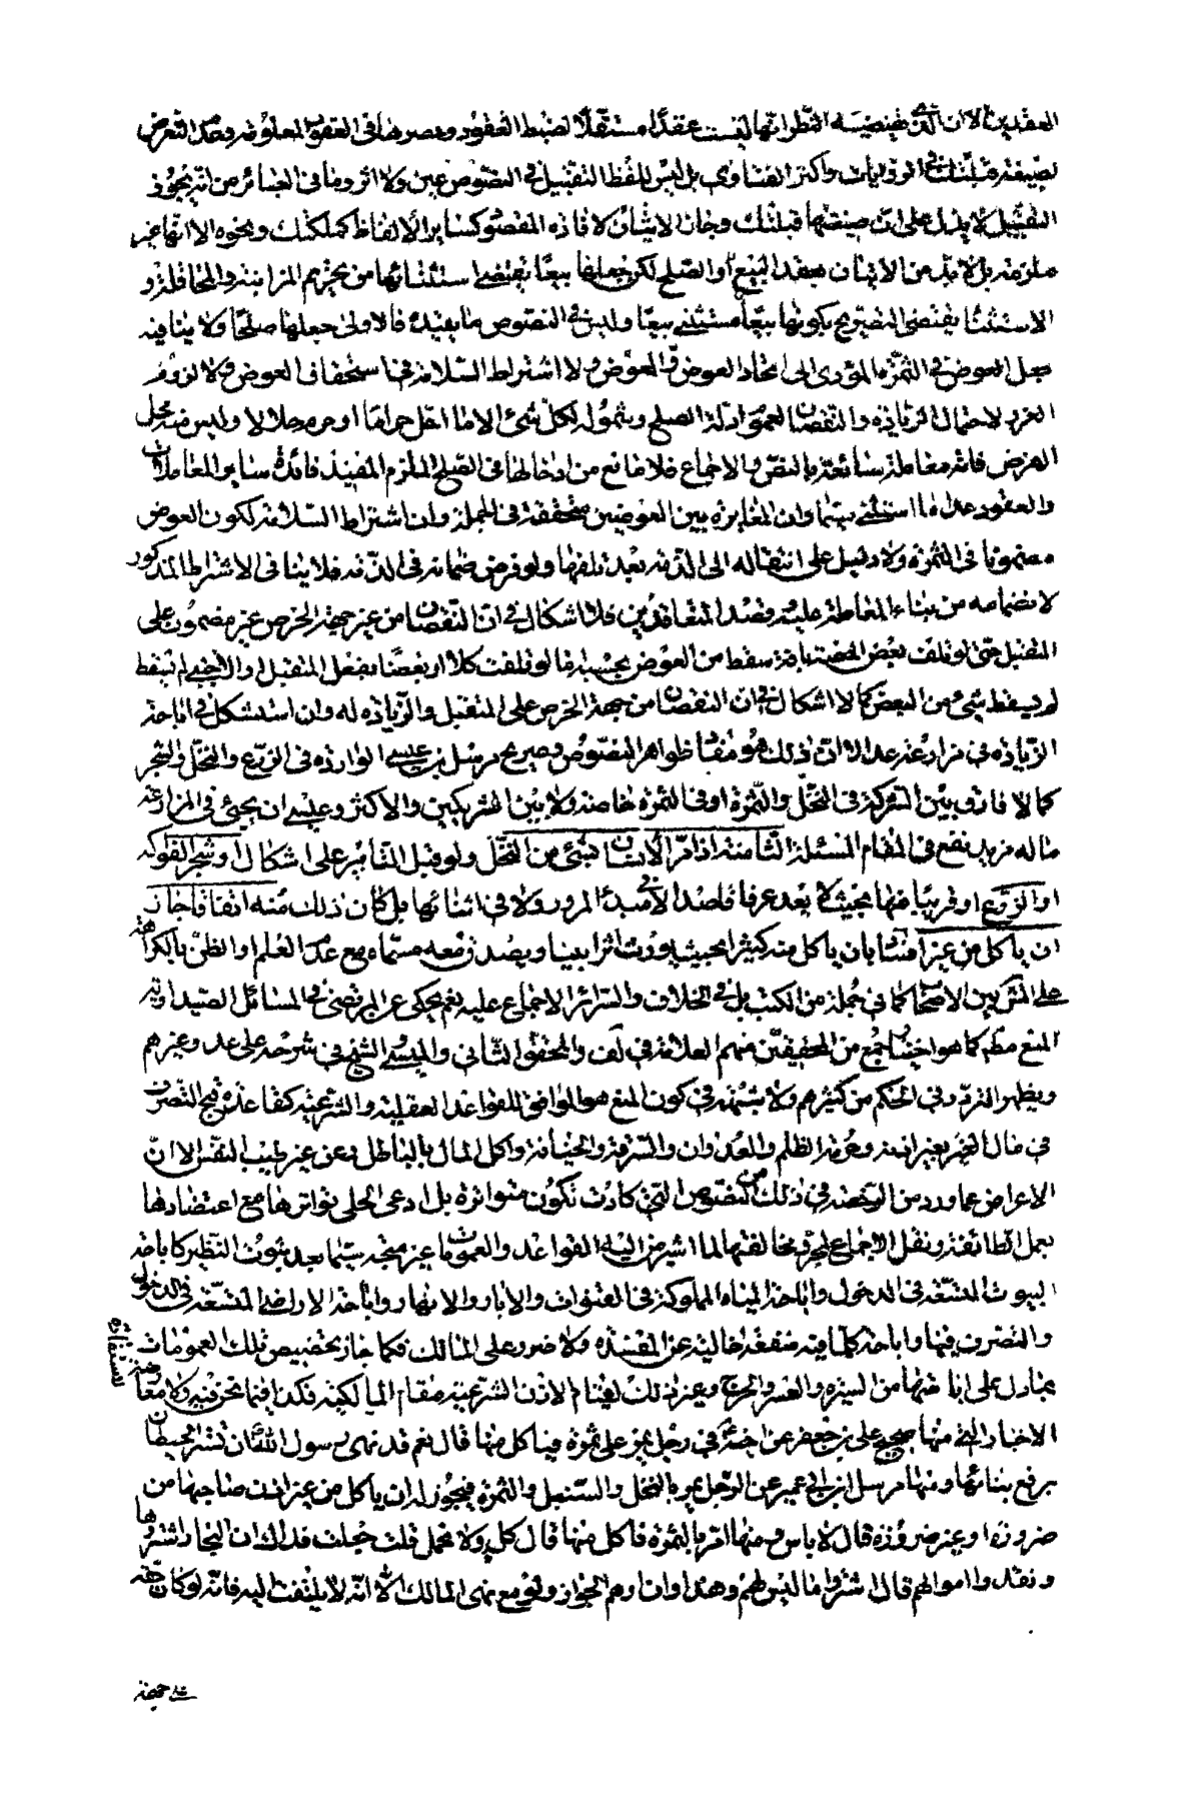 العقدين الا ان الذي يقتضيه النظر انها ليست عقدا مستقلا لضبط العقود وحصرها في العقود المعلومة وعدم التعرض
لصيغة قبلتك في الروايات واكثر الفتاوى بل ليس للفظ التقبيل في النصوص عين ولا اثر وما في العبائر من انه يجوز
التقبيل لا يدل على ان صيغتها قبلتك وجاز الاتيان لافادة المقصود كسائر الالفاظ كملكتك ونحوه الا انها غير
ملزمة بل لابد من الاتيان بعقد البيع او الصلح لكن جعلها بيعا يقتضي استثنائها من تحريم المزابنة والمحاقلة و
الاستثناء يقتضي التصريح بكونها بيعا مستثنى بيعا وليس في النصوص ما يفيده فالاولى جعلها صلحا ولا ينافيه
جعل العوض في الثمرة المؤدي الى اتحاد العوض والمعوض ولا اشتراط السلامة في استحقاق العوض ولا لزوم
الغرر لاحتمال الزيادة والنقصان لعموم ادلة الصلح وشموله لكل شيء الا ما احل حراما او حرم حلالا وليس منه محل
الفرض فانه معاملة سائغة بالنص والاجماع فلا مانع من ادخالها في الصلح الملزم المفيد فائدة سائر المعاملات
والعقود عدا ما استثني سيما وان المغايرة بين العوضين متحققة في الجملة وان اشتراط السلامة لكون العوض
مضمونا في الثمرة ولا دليل على انتقاله الى الذمة بعد تلفها ولو فرض ضمانه في الذمة فلا ينافي الاشتراط المذكور
لانضمامه من بناء المعاملة عليه وقصد المتعاقدين فلا اشكال في ان النقصان من غير جهة الخرص غير مضمون على
المتقبل حتى لو تلف بعض الحصة بافة سقط من العوض بحسبه اما لو تلفت كلا او بعضا بفعل المتقبل او الاجنبي لم يسقط
لم يسقط شيء من البعض كما لا اشكال في ان النقصان من جهة الخرص على المتقبل والزيادة له وان استشكل في اباحة
الزيادة في مزارعة عد الا ان ذلك هو مفاد ظواهر النصوص وصريح مرسل بن عيسى الواردة في الزرع والنخل والشجر
كما لا فارق بين الشركة في النخل والثمرة او في الثمرة خاصة ولا بين الشريكين والاكثر وعسى ان يجيء في المزارعة
ما له مزيد نفع في المقام المسئلة الثامنة اذا مر الانسان بشيء من النخل ولو قبل التابير على اشكال او شجر الفواكه
او الزرع او قريبا منها بحيث لا يعد عرفا قاصدا لا في مبدء المرور ولا في اثنائها بل كان ذلك منه اتفاقا جاز له
ان ياكل من غير افساد بان ياكل منه كثيرا بحيث يؤثر اثرا بينا ويصدق معه مسماه مع عدم العلم او الظن بالكراهة
على المش بين الاصحاب كما في جملة من الكتب بل في الخلاف والسرائر الاجماع عليه نعم يحكى عن المرتضى في المسائل الصيداوية
المنع مطلقا كما هو اختيار جمع من المحققين منهم العلامة في لف والمحقق الثاني والميسي الشيخ في شرحه على عد وغيرهم
ويظهر التردد في الحكم من كثيرهم ولا شبهة في كون المنع هو الموافق للقواعد العقلية والشرعية كقاعدة قبح التصرف
في مال الغير بغير اذنه وحرمة الظلم والعدوان والسرقة والخيانة واكل المال بالباطل وعن غير طيب النفس الا ان
الاعراض عما ورد من الرخصة في ذلك من النصوص التي كادت تكون متواترة بل ادعى الحلي تواترها مع اعتضادها
بعمل الطائفة ونقل الاجماع عليه ومخالفتها لما اشير اليه القواعد والعمومات غير متجه سيما بعد ثبوت النظير كاباحة
البيوت المتسعة في الدخول واباحة المياه المملوكة في القنوات والابار والانهار واباحة الاراضي المتسعة في الدخول
والتصرف فيها واباحة كلما فيه منفعة خالية عن المفسدة ولا ضرر على المالك فكما جاز تخصيص تلك العمومات
بما دل على اباحتها من السيرة والعسر والحرج وغير ذلك لقيام الاذن الشرعية مقام المالكية فكذا فيما نحن فيه ولا معارضة
الاخبار التي منها صحيح علي بن جعفر عن اخيه في رجل يمر على ثمرة فياكل منها قال نعم قد نهى رسول الله ان تستر الحيطان
برفع بنائها ومنها مرسل ابن ابي عمير عن الرجل يمر بالنخل والسنبل والثمرة فيجوز له ان ياكل من غير اذن صاحبها من
ضرورة او غير ضرورة قال لا باس ومنها امر بالثمرة فاكل منها قال كل ولا تحمل قلت جعلت فداك ان التجار اشتروها
ونقدوا اموالهم قال اشتروا ما ليس لهم وهذا وان اوهم الجواز ولو مع نهي المالك الا انه لا يلتفت اليه فانه لو كان